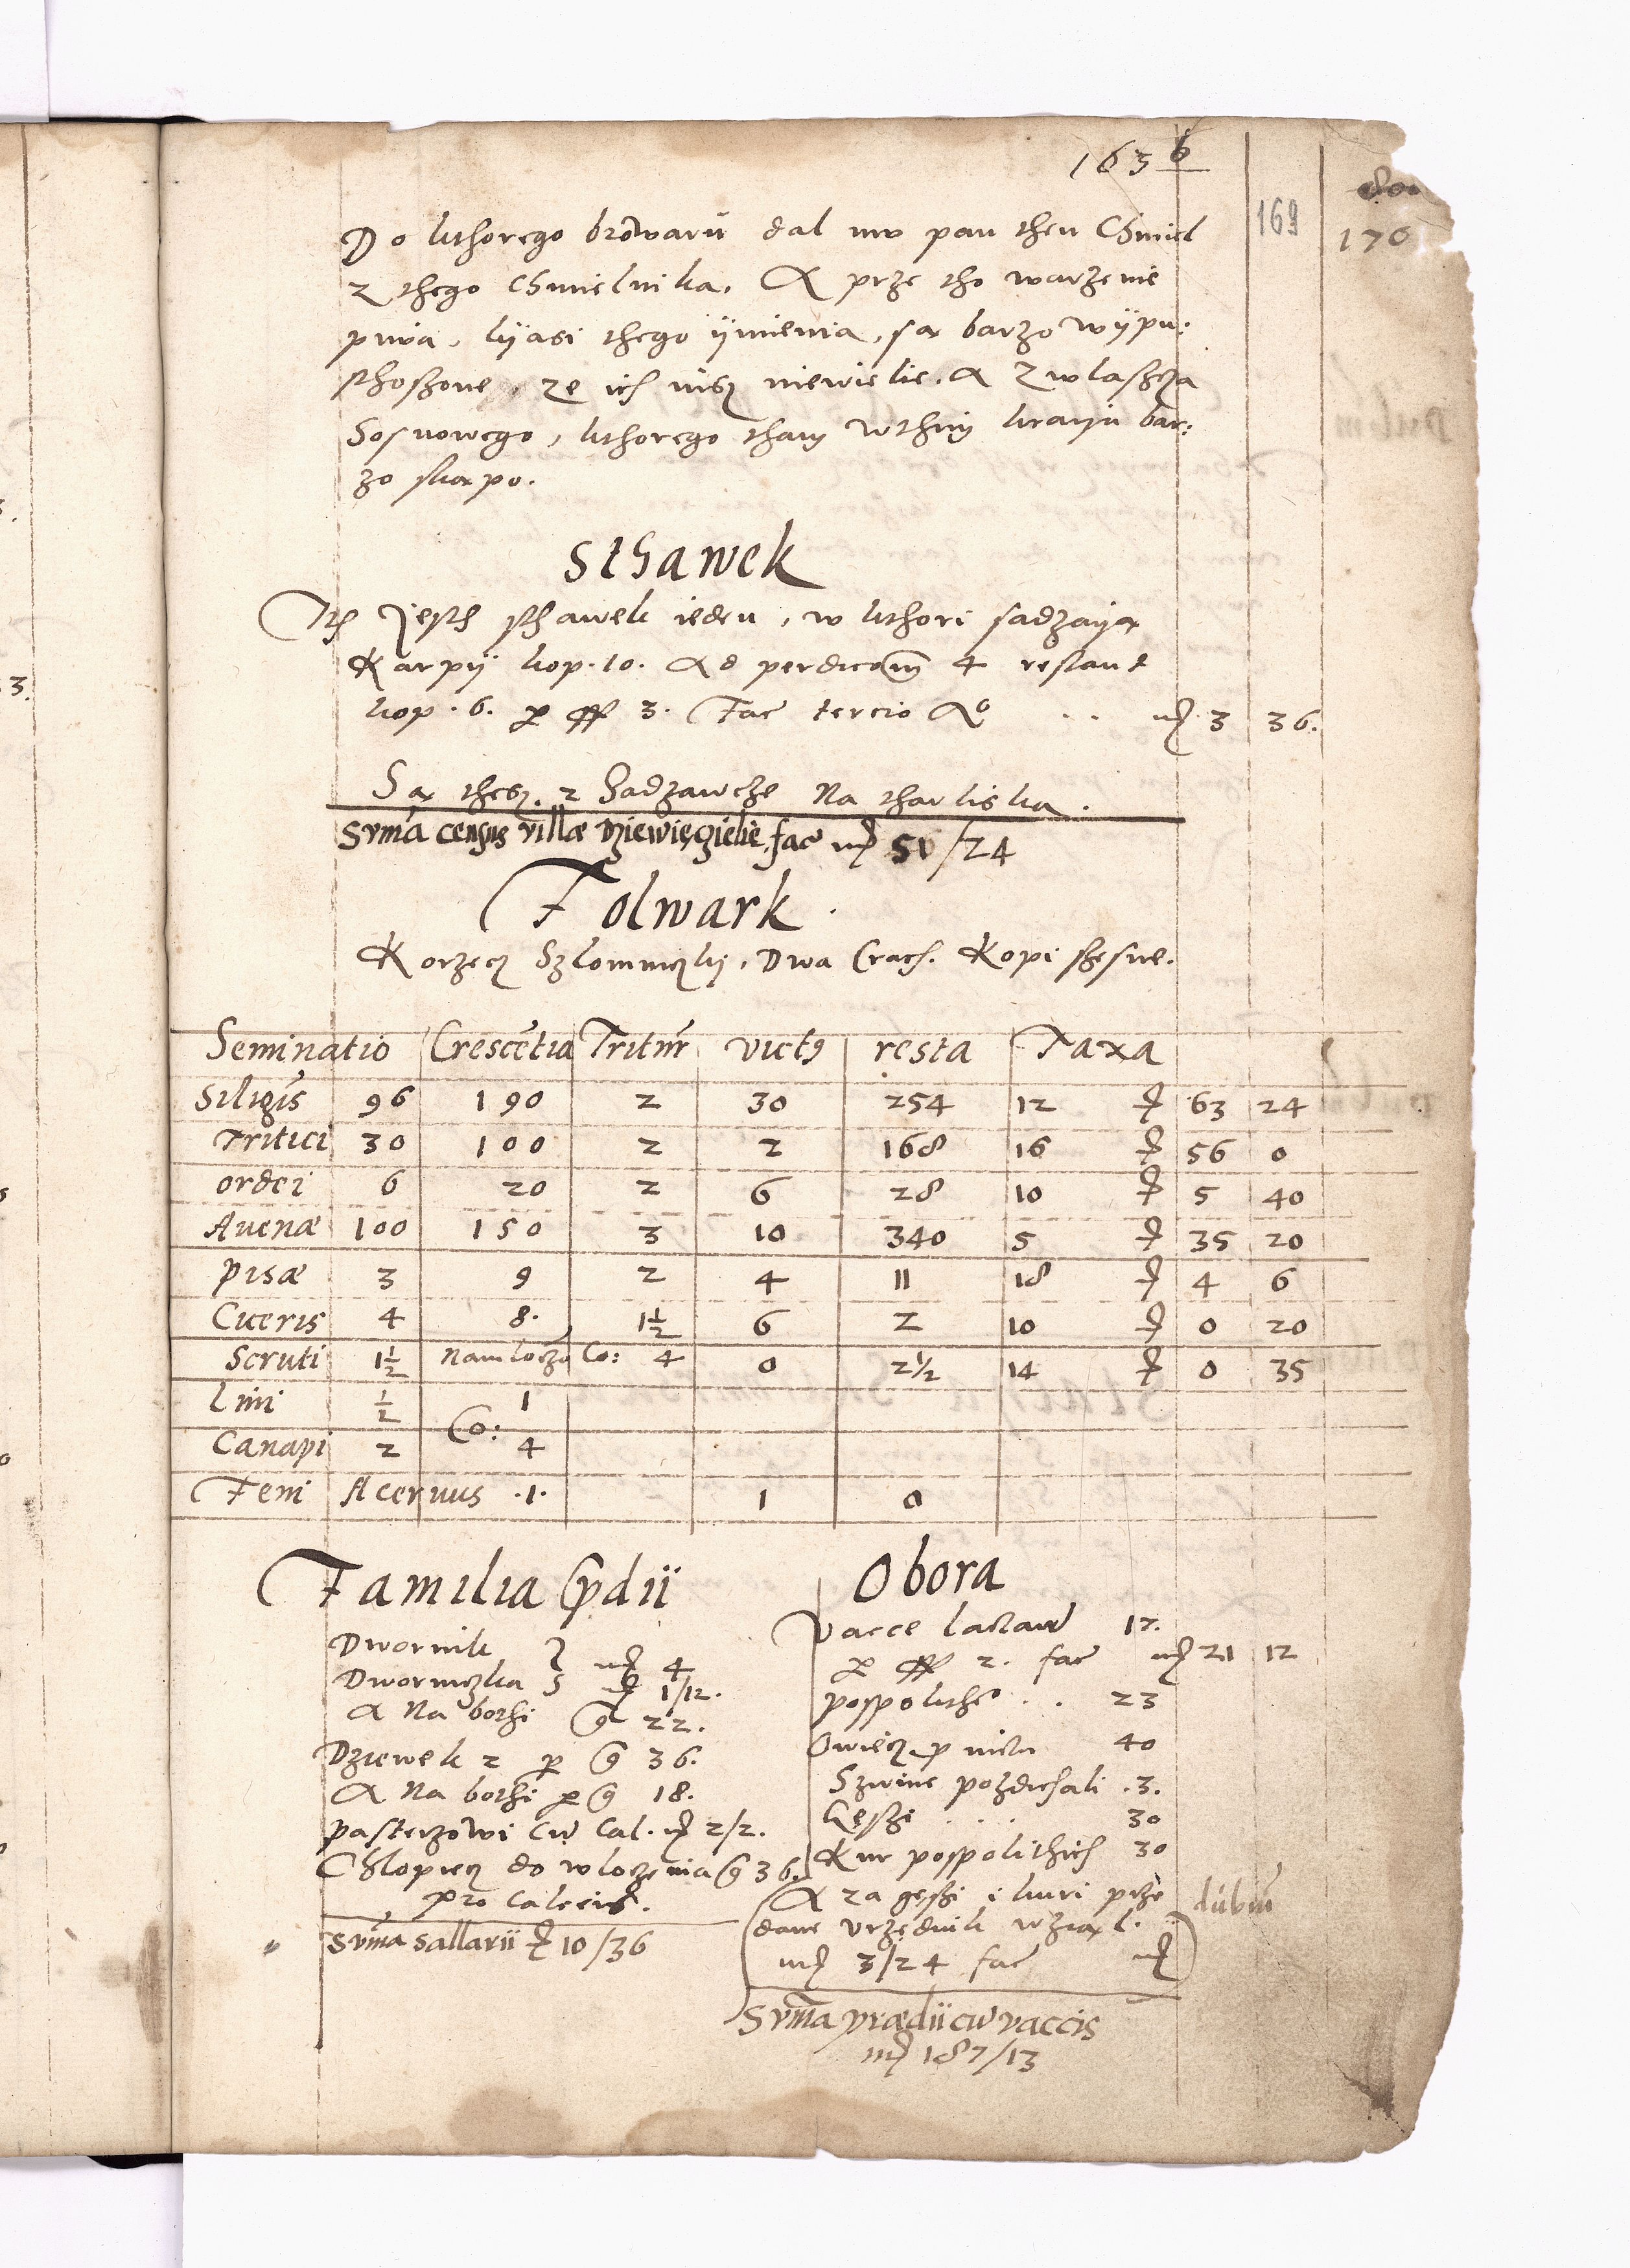 163 6
169
170
Do kthorego browaru dal mu pan then Chmiel
z thego Chmielnika. A prze tho warzenie
piwa, lyasi thego ymienia, są barzo wypu:
sthoszone, ze ich nisz niewiele. A Zwlaszcza
Sosnowego, kthorego tham wthim kraiu bar:
zo skąpo.
Sthawek
Ith Jesth sthawek ieden, w kthori sadzayą
Karpy kop. 10. Ad perdicom 4 restant
kop. 6. per ff 3. Fac tercio Ao .. mrc 3 36.
Są thesz z Sadzawcze Na tharliska.
Suma census villæ Dziewięczielie fac mrc 51/24
Folwark
Korzecz Szlomniczky, Dwa Crach. Kopi szesne.
Seminatio Crescetia Tritur victus resta Taxa
Siliginis 96 190 2 30 254 12 mrc 63 24
Tritici 30 100 2 2 168 16 mrc 56 0
ordei 6 20 2 6 28 10 mrc 5 40
Auenæ 100 150 3 10 340 5 mrc 35 20
pisæ 3 9 2 4 11 18 mrc 4 6
Ciceris 4 8. 1½ 6 2 10 mrc 0 20
Scruti 1½ Namloczo Co: 4 0 2½ 14 mrc 0 35
Lini ½ 1
Co:
Canapi 2 4
Feni Aceruus .1. 1 0
Familia pdii
Dwornik } mrc 4
Dworniczka mrc 1/12.
A Na bothi g 22.
Dziewek 2 per g 36.
A Na bothi per g 18.
pasterzowi Cu Cal. mrc 2/2.
Chlopiecz do wloczenia g 36.
pro Calceis.
Suma sallarii mrc 10/36
Obora
Vacce lactan 12.
per ff 2. fac mrc 21 12
pospolithe .. 23
Owiecz p nictu 40
Szwine pozdichali .3.
Gęszi ... 30
Kur pospolithich 30
A za gęszi i kuri prze
dane Vrzędnik wziąl.
mrc 3/24 fac mrc
dubiu
Suma prædii cu vaccis
mrc 187/13